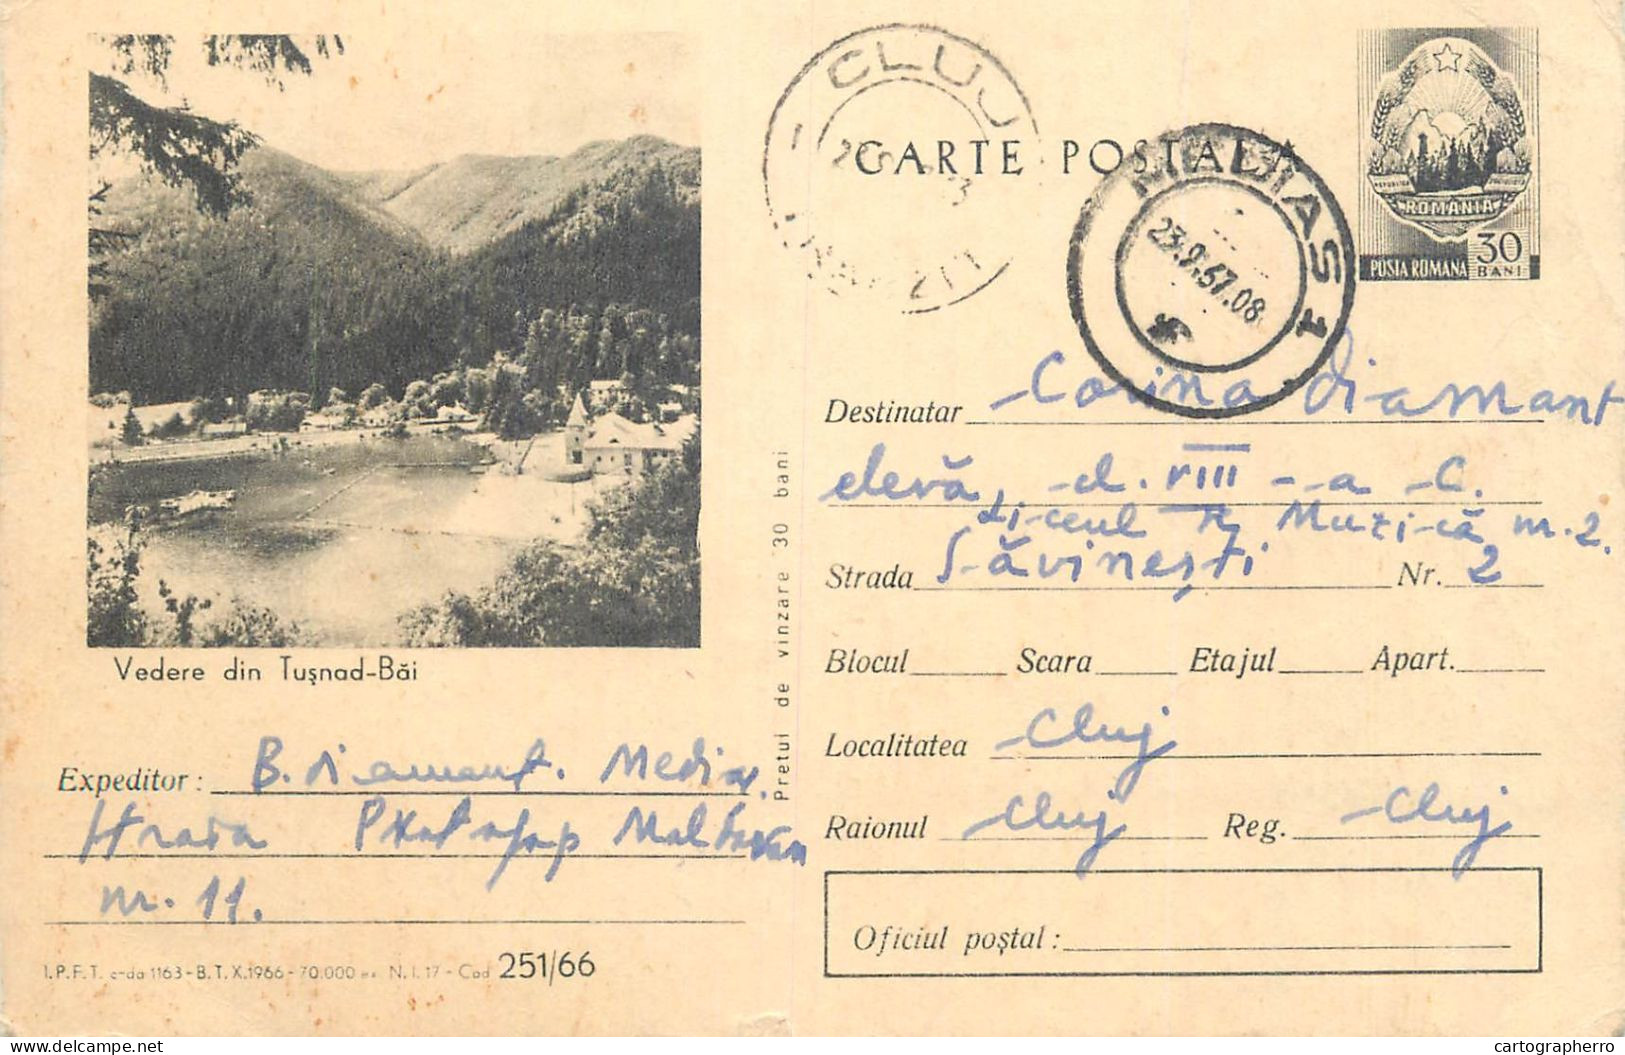 CLUJ
CARTE POSTALĂ
MEDIAS 1
23.9.67.08
ROMÂNIA
POSTA ROMANA 30 BANI
Destinatar Corina Diamant
elevă, cl. VIII-a C.
Liceul Muzică nr. 2.
Strada Săvinești Nr. 2
Blocul Scara Etajul Apart.
Localitatea Cluj
Raionul Cluj Reg. Cluj
Oficiul poştal:
Pretul de vinzare 30 bani
Vedere din Tuşnad-Băi
Expeditor: B. Diamant. Mediaș.
Strada
nr. 11.
I.P.F.T. c-da 1163-B.T.X.1966-70.000 ex. N.I. 17 - Cod 251/66
DELCAMPE.NET
cartographerro